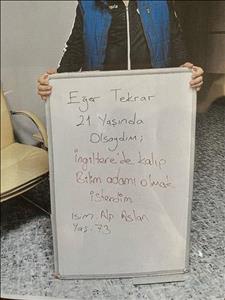 Eğer Tekrar
21 Yaşında
Olsaydım;
İngiltere'de kalıp
Bilim adamı olmak
isterdim
isim: Alp Aslan
Yaş: 73